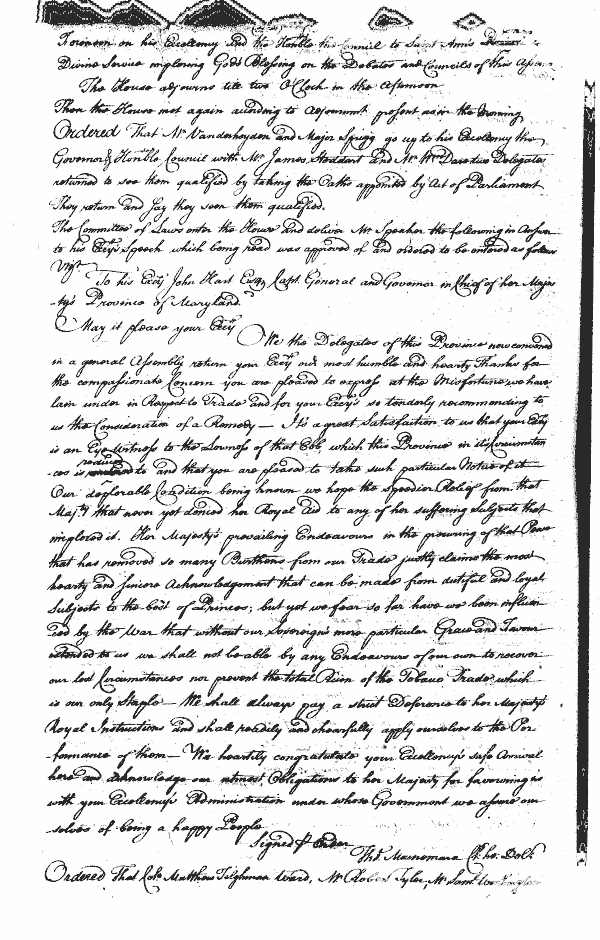 Forenoon on his Excellency and the Honble the Council to Saint Anns
Divine Service imploring Gods Blessing on the Debates and Councils of this
The House adjourns till two O'Clock in the Afternoon
Then the House met again according to Adjournmt. present as in the Morning
Ordered That Mr. Vanderheyden and Major Sprigg go up to his Excellency the
Governor & Honble Council with Mr. James Stoddart and Mr. Wm. Two Delegates
returned to see them qualified by taking the Oaths appointed by Act of Parliament
They return and say they seen them qualified.
The Committee of Laws enter the House and deliver Mr. Speaker the following in Answer
to his Excys. Speech which being read was approved of and ordered to be entered as follows
Vizt.
To his Excy John Hart Esqr. Capt. General and Governor in Chief of her Majes
-ty's Province of Maryland
May it please your Excy
We the Delegates of this Province now convened
in a general Assembly return your Excy our most humble and hearty Thanks for
the compassionate Concern you are pleased to express at the Misfortune we have
lain under in Respect to Trade and for your Excy's so tenderly recommending to
us the Consideration of a Remedy — It's a great Satisfaction to us that your Excy
is an Eye Witness to the Lowness of that Ebb, which this Province in its Circumstan
ces is reduced to and that you are pleased to take such particular Notice of it
Our deplorable Condition being known we hope the speedier Relief from that
Majty. that never yet denied her Royal Aid to any of her suffering Subjects that
implored it. Her Majesty's prevailing Endeavours in the procuring of that Peace
that has removed so many Burthens from our Trade justly claims the most
hearty and sincere Acknowledgement that can be made from dutiful and loyal
Subjects to the best of Princess; but yet we fear so far have we been influen
ced by the War that without our Sovereign's more particular Grace and Favour
extended to us we shall not be able by any Endeavours of our own to recover
our lost Circumstances nor prevent the total Ruin of the Tobacco Trade which
is our only Staple — We shall always pay a strict Deference to her Majesty's
Royal Instructions and shall readily and chearfully apply ourselves to the Per
formance of them — We heartily congratulate your Excellency's safe Arrival
here and acknowledge our utmost Obligations to her Majesty for favouring us
with your Excellency's Administration under whose Government we assure our
selves of being a happy People
Signed p Order
Ths. Macnemara Cl. ho. Del.
Ordered That Colo. Matthew Tilghman Ward, Mr. Robert Tyler, Mr. Saml.